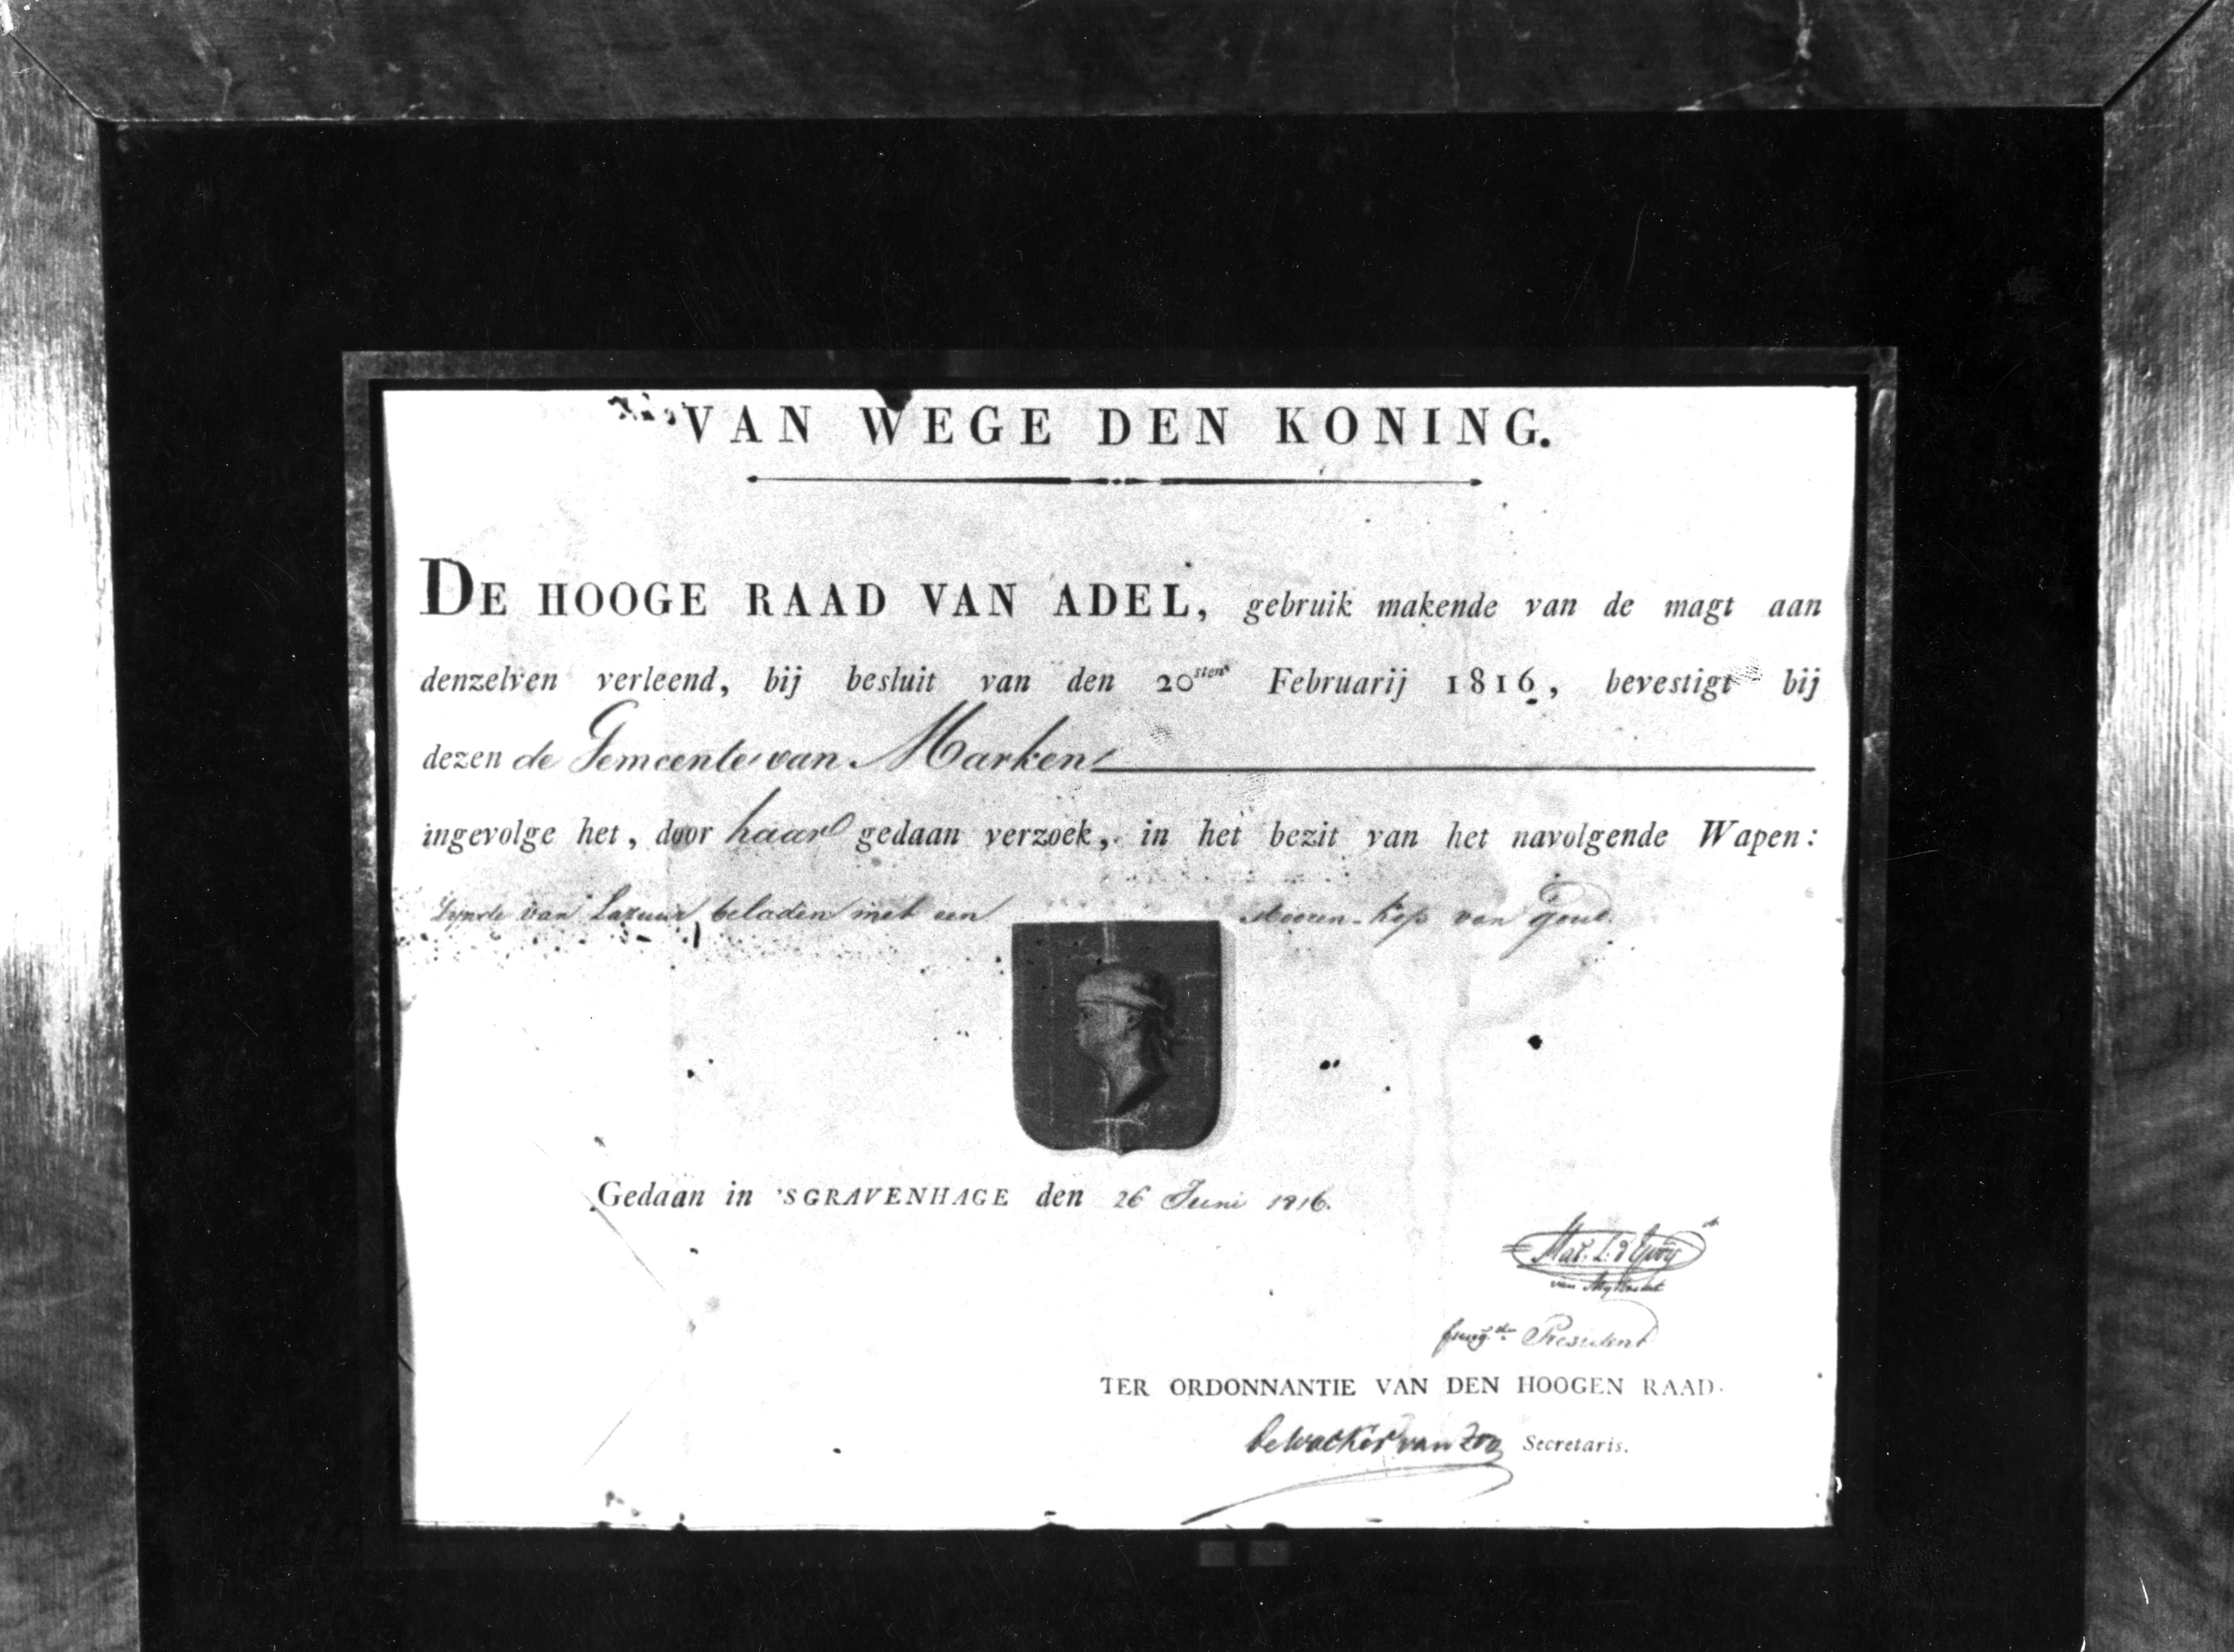 VAN WEGE DEN KONING.
DE HOOGE RAAD VAN ADEL, gebruik makende van de magt aan
denzelven verleend, bij besluit van den 20sten Februarij 1816, bevestigt bij
dezen de Gemeente van Marken
ingevolge het, door haar gedaan verzoek, in het bezit van het navolgende Wapen:
Zynde van Lazuur beladen met een Mooren-kop van goud.
Gedaan in 'SGRAVENHAGE den 26 Juni 1816.
fung.de President
TER ORDONNANTIE VAN DEN HOOGEN RAAD.
de Wacker van Zon Secretaris.